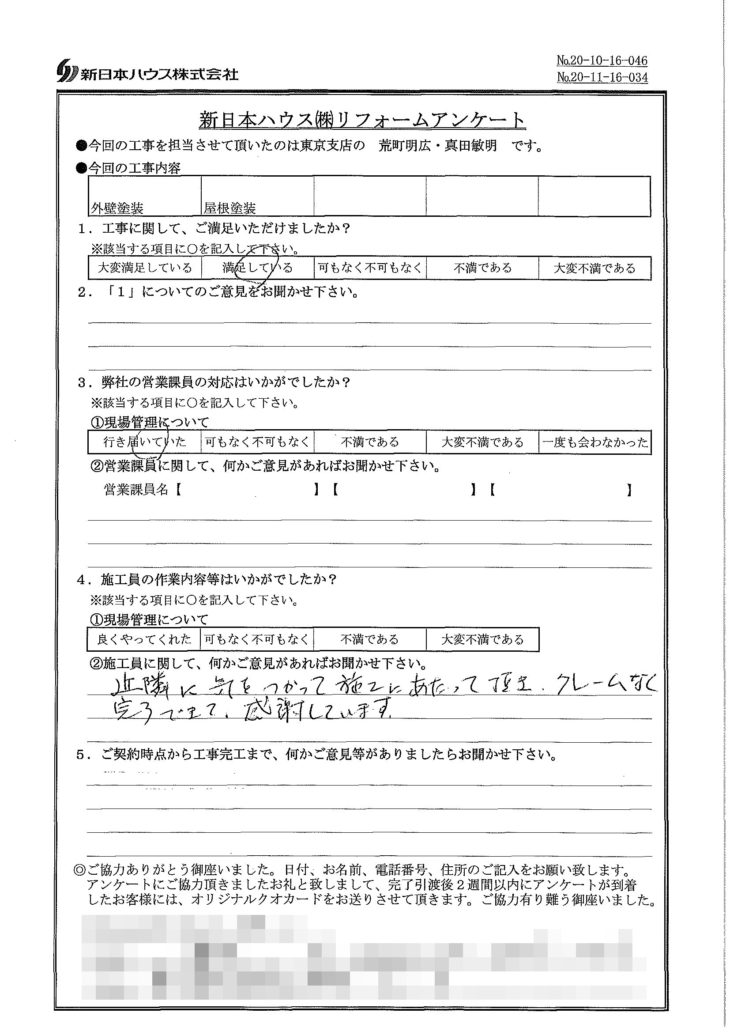 新日本ハウス株式会社
№20-10-16-046
№20-11-16-034
新日本ハウス㈱リフォームアンケート
●今回の工事を担当させて頂いたのは東京支店の 荒町明広・真田敏明 です。
●今回の工事内容
外壁塗装 屋根塗装
1．工事に関して、ご満足いただけましたか？
※該当する項目に○を記入して下さい。
大変満足している 満足している 可もなく不可もなく 不満である 大変不満である
2．「1」についてのご意見をお聞かせ下さい。
3．弊社の営業課員の対応はいかがでしたか？
※該当する項目に○を記入して下さい。
①現場管理について
行き届いていた 可もなく不可もなく 不満である 大変不満である 一度も会わなかった
②営業課員に関して、何かご意見があればお聞かせ下さい。
営業課員名【 】【 】【 】
4．施工員の作業内容等はいかがでしたか？
※該当する項目に○を記入して下さい。
①現場管理について
良くやってくれた 可もなく不可もなく 不満である 大変不満である
②施工員に関して、何かご意見があればお聞かせ下さい。
近隣に気をつかって施工にあたって頂き、クレームなく
完了できて、感謝しています。
5．ご契約時点から工事完工まで、何かご意見等がありましたらお聞かせ下さい。
◎ご協力ありがとう御座いました。日付、お名前、電話番号、住所のご記入をお願い致します。
アンケートにご協力頂きましたお礼と致しまして、完了引渡後2週間以内にアンケートが到着
したお客様には、オリジナルクオカードをお送りさせて頂きます。ご協力有り難う御座いました。